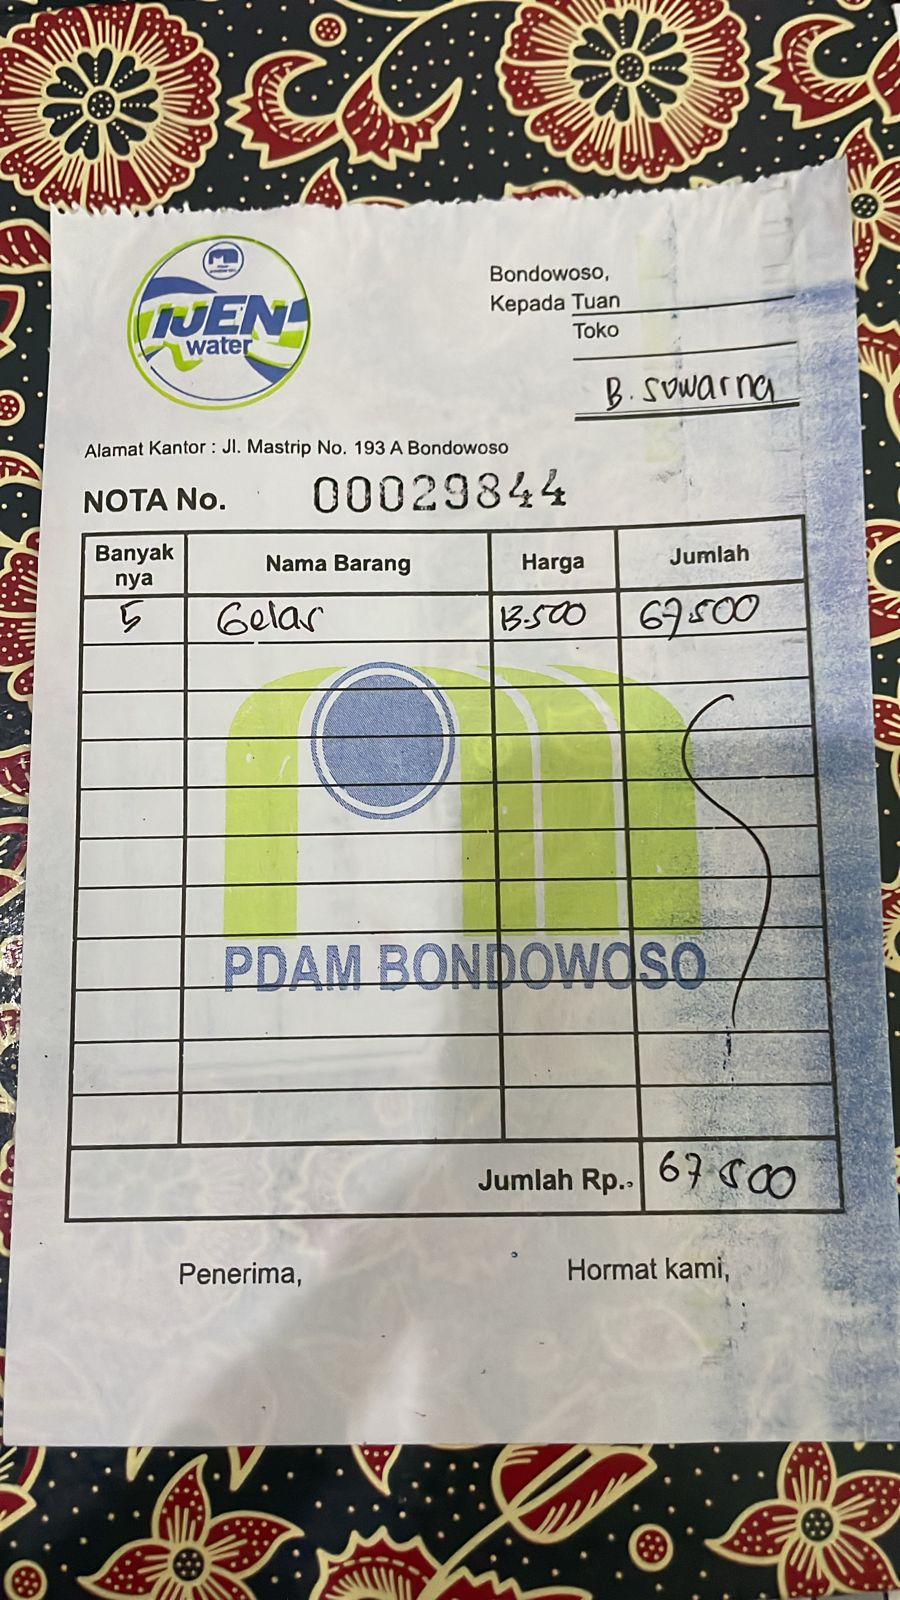 IJEN
water
Bondowoso,
Kepada Tuan
Toko
B. Suwarna
Alamat Kantor : Jl. Mastrip No. 193 A Bondowoso
NOTA No. 00029844
Banyak nya Nama Barang Harga Jumlah
5 Gelas 13.500 67.500
PDAM BONDOWOSO
Jumlah Rp.. 67 500
Penerima, Hormat kami,